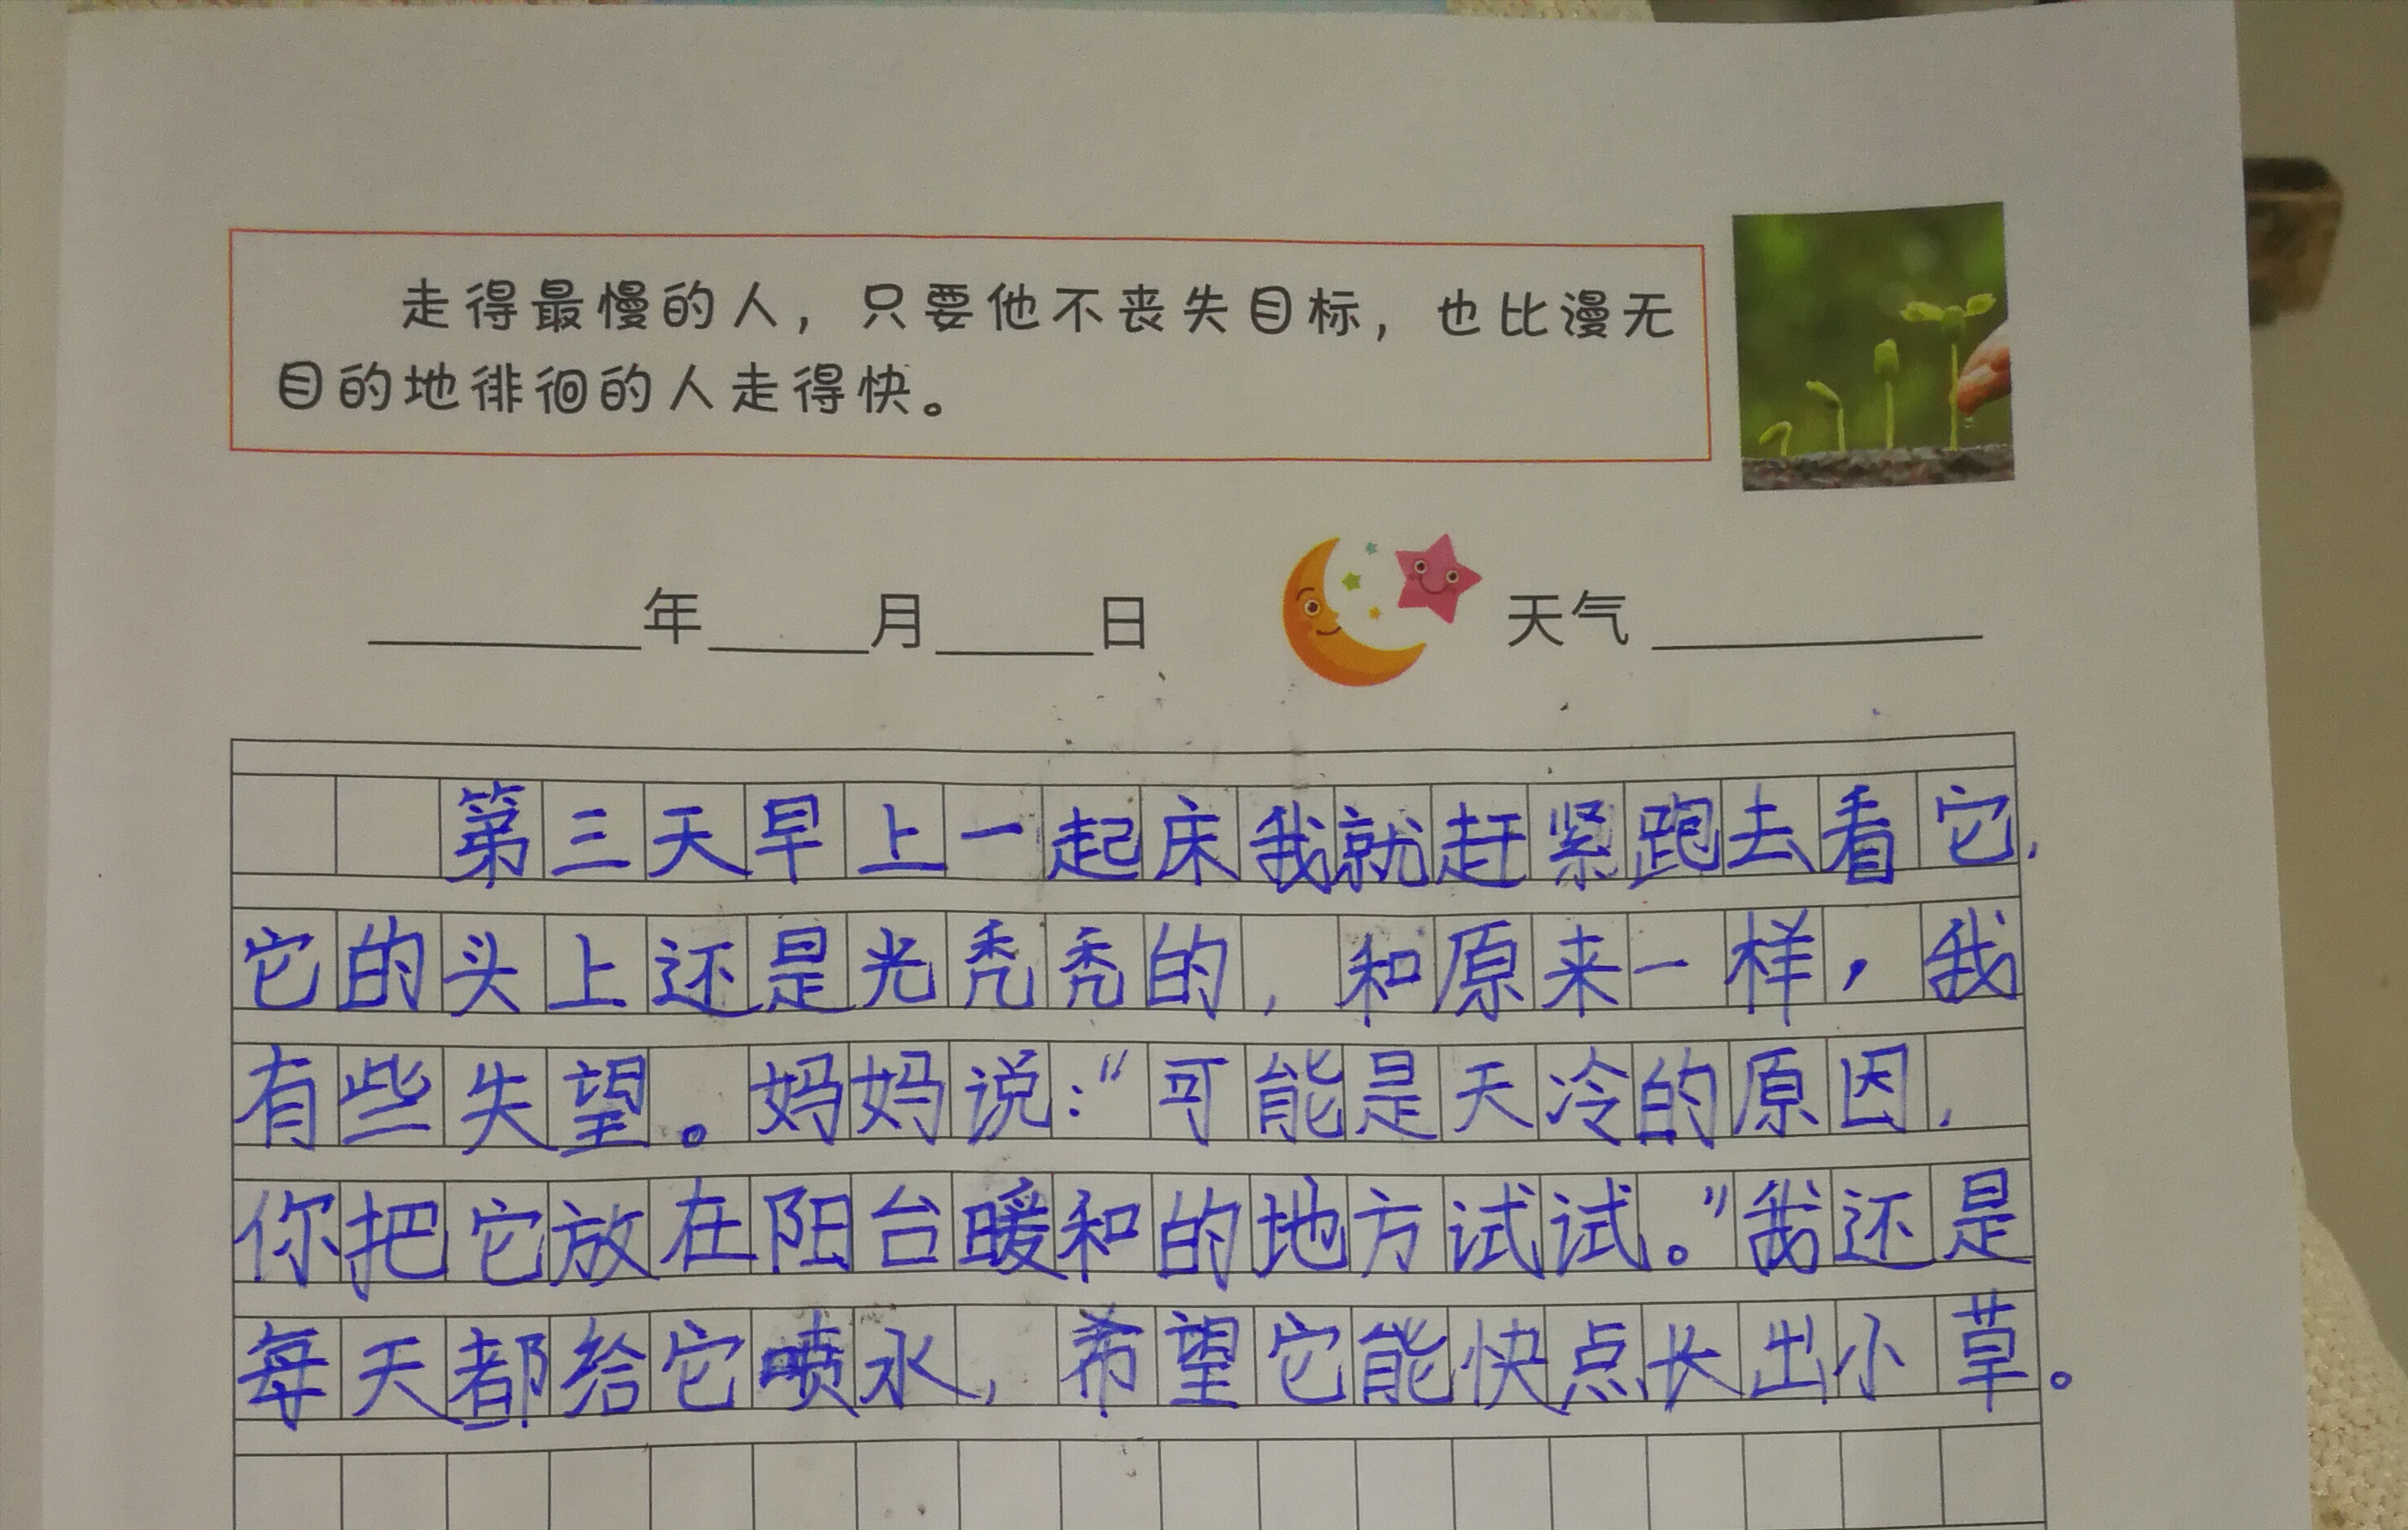 走得最慢的人，只要他不丧失目标，也比漫无
目的地徘徊的人走得快。
年 月 日 天气
第三天早上一起床我就赶紧跑去看它，
它的头上还是光秃秃的，和原来一样，我
有些失望。妈妈说：“可能是天冷的原因，
你把它放在阳台暖和的地方试试。”我还是
每天都给它喷水，希望它能快点长出小草。